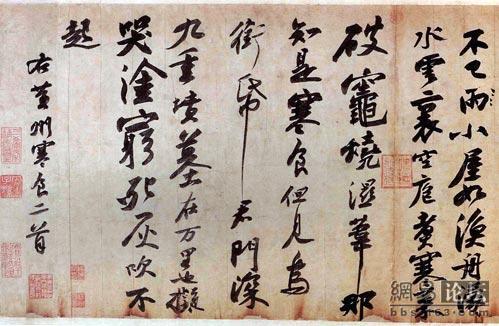 不已雨小屋如漁舟濛
水雲裏空庖煮寒菜
破竈燒濕葦那
知是寒食但見烏
銜帋君門深
九重墳墓在万里也擬
哭塗窮死灰吹不
起
右黄州寒食二首
網易 论坛
bbs.163.com